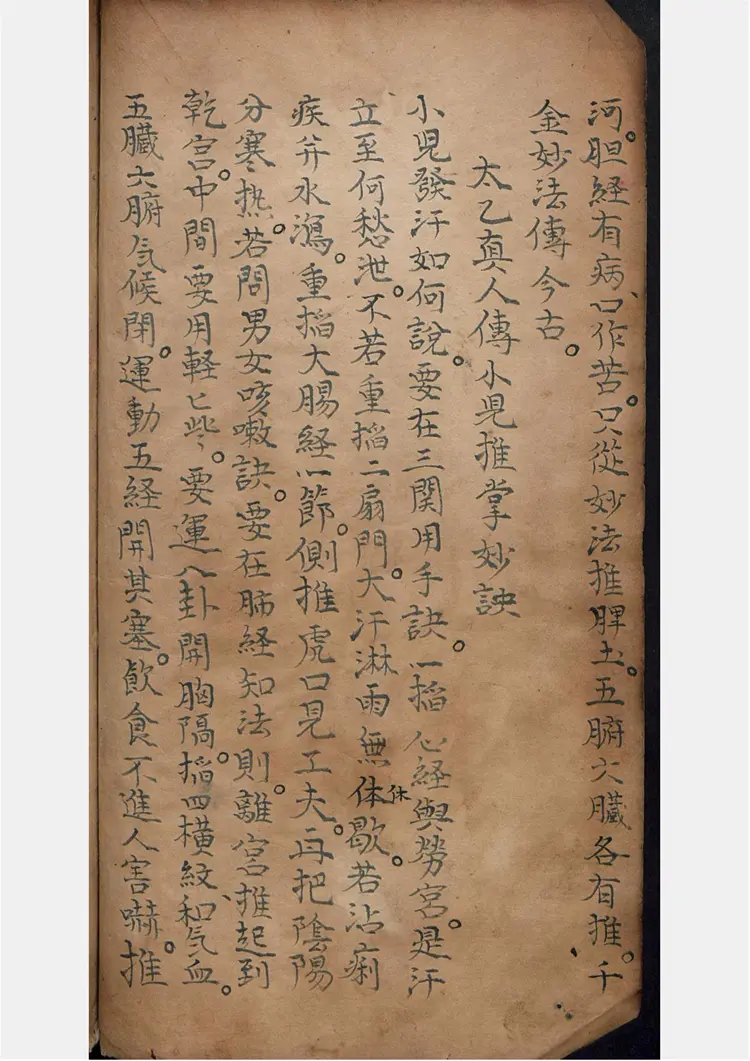 河。胆経有病、口作苦。只從妙法推脾土。五腑六臓各有推。千
金妙法傳今古。
太乙真人傳小兒推掌妙訣
小兒發汗如何說。要在三関用手訣。一掐心経與勞宮。是汗
立至何愁泄。不若重掐二扇門。大汗淋雨無体休歇。若沾痢
疾并水瀉。重掐大腸経一節。側推虎口見工夫。再把陰陽
分寒热。若問男女咳嗽訣。要在肺経知法則。離宮推起到
乾宮。中間要用軽匕些。要運八卦開胸隔。掐四横紋、和气血。
五臓六腑气候閉。運動五経開其塞。飲食不進人害嚇。推